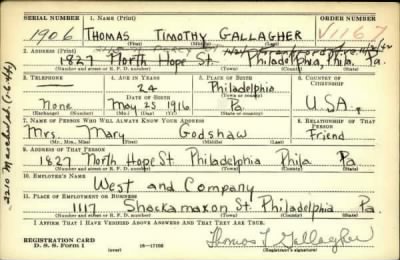 SERIAL NUMBER 1. NAME (Print)
1906 THOMAS TIMOTHY GALLAGHER V1167
(First) (Middle) (Last)
2. ADDRESS (Print)
1827 North Hope St. Philadelphia, Phila. Pa.
(Number and street or R. F. D. number) (Town) (County) (State)
3. TELEPHONE 4. AGE IN YEARS 5. PLACE OF BIRTH 6. COUNTRY OF CITIZENSHIP
24 Philadelphia
DATE OF BIRTH
None May 25 1916 Pa. U.S.A.
(Exchange) (Number) (Mo.) (Day) (Yr.) (State or country)
7. NAME OF PERSON WHO WILL ALWAYS KNOW YOUR ADDRESS 8. RELATIONSHIP OF THAT PERSON
Mrs. Mary Godshaw Friend
(Mr., Mrs., Miss) (First) (Middle) (Last)
9. ADDRESS OF THAT PERSON
1827 North Hope St. Philadelphia Phila Pa
(Number and street or R. F. D. number) (Town) (County) (State)
10. EMPLOYER'S NAME
West and Company
11. PLACE OF EMPLOYMENT OR BUSINESS
1117 Shackamaxon St. Philadelphia Pa.
(Number and street or R. F. D. number) (Town) (County) (State)
I AFFIRM THAT I HAVE VERIFIED ABOVE ANSWERS AND THAT THEY ARE TRUE.
REGISTRATION CARD
D. S. S. Form 1 (over) 16—17105 Thomas T Gallagher
(Registrant's signature)
2210